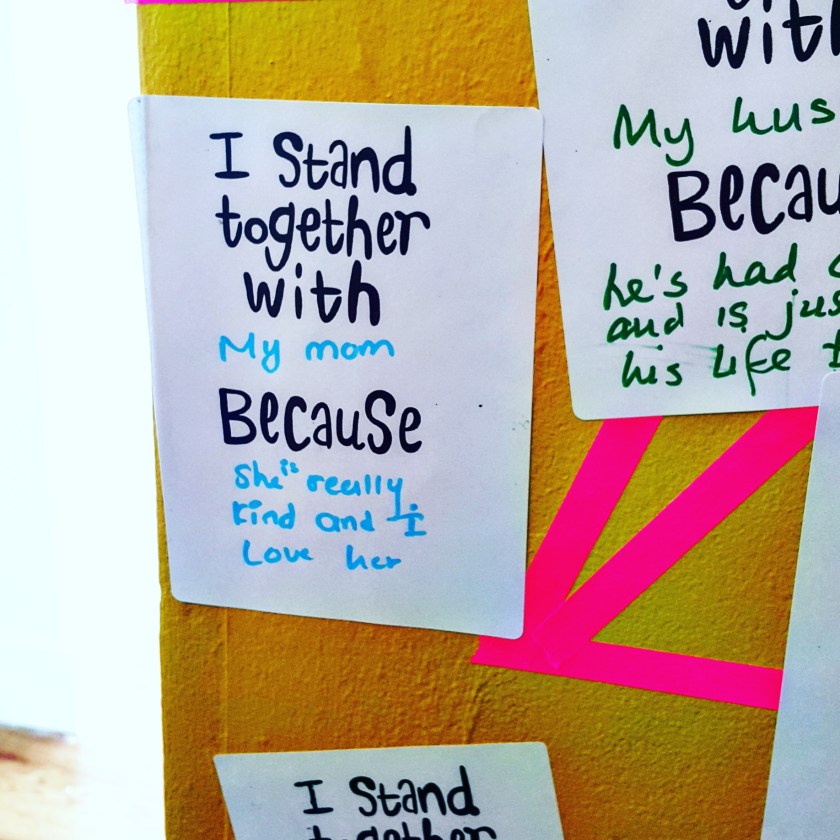 I Stand
together
with
My mom
Because
She is really
kind and I
Love her
with
My hus
Becau
he's had
and is jus
his life
I Stand
together